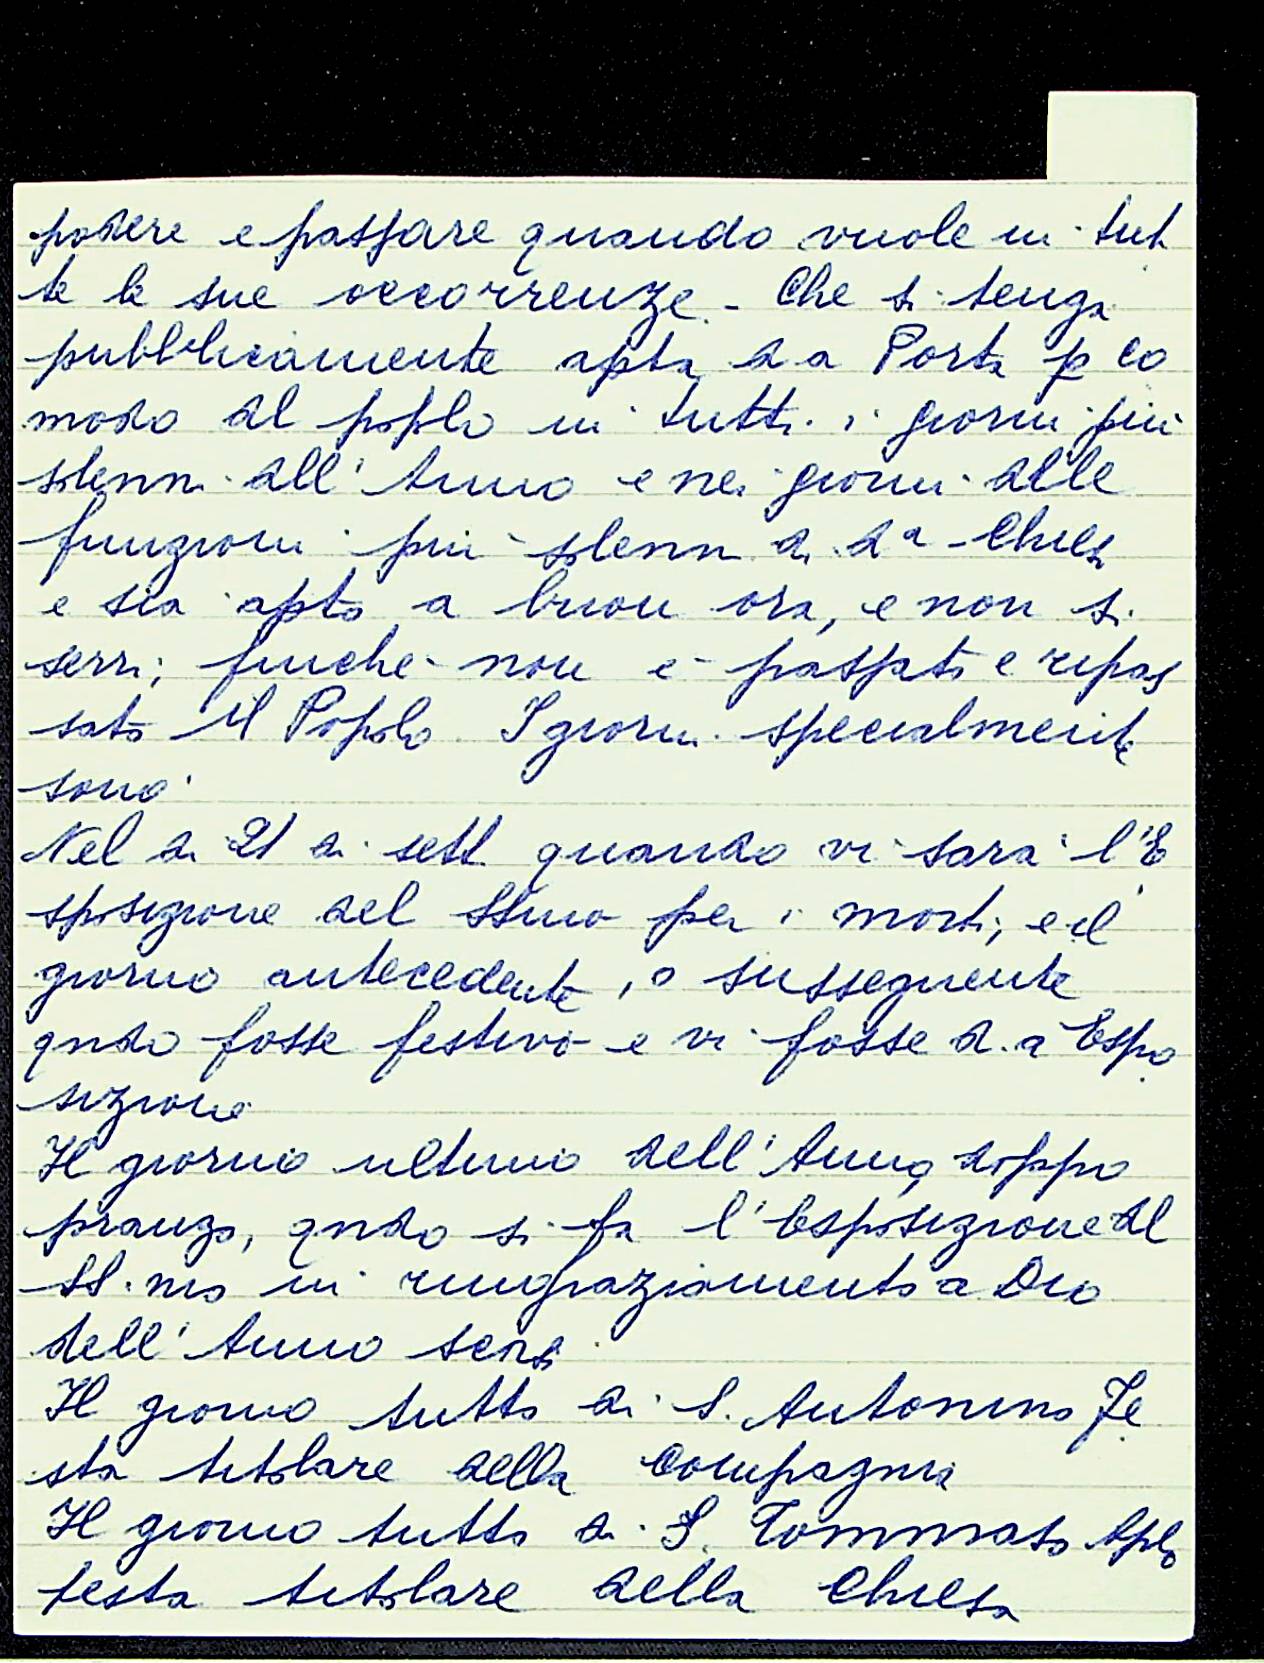 podere e passare quando vuole in tut
te le sue occorrenze - Che si tenga
pubblicamente apta d a Porta p co
modo del popolo in tutti i giorni più
solenni dell'Anno e nei giorni delle
funzioni più solenni di da Chiesa
e sia apta a buon ora, e non si
serri; finche non è passato e ripas
sato il Popolo I giorni specialmente
sono
Nel dì 21 di sett quando vi sarà l'E
sposizione del SSmo per i morti, e il
giorno antecedente, o susseguente
qndo fosse festivo e vi fosse d.a Espo
sizione
Il giorno ultimo dell'Anno doppo
pranzo, qndo si fa l'Esposizione del
SS.mo in ringraziamento a Dio
dell'Anno scors
Il giorno tutto di S. Antonino Fe
sta titolare della Compagnia
Il giorno tutto di S. Tommaso Aplo
festa titolare della Chiesa